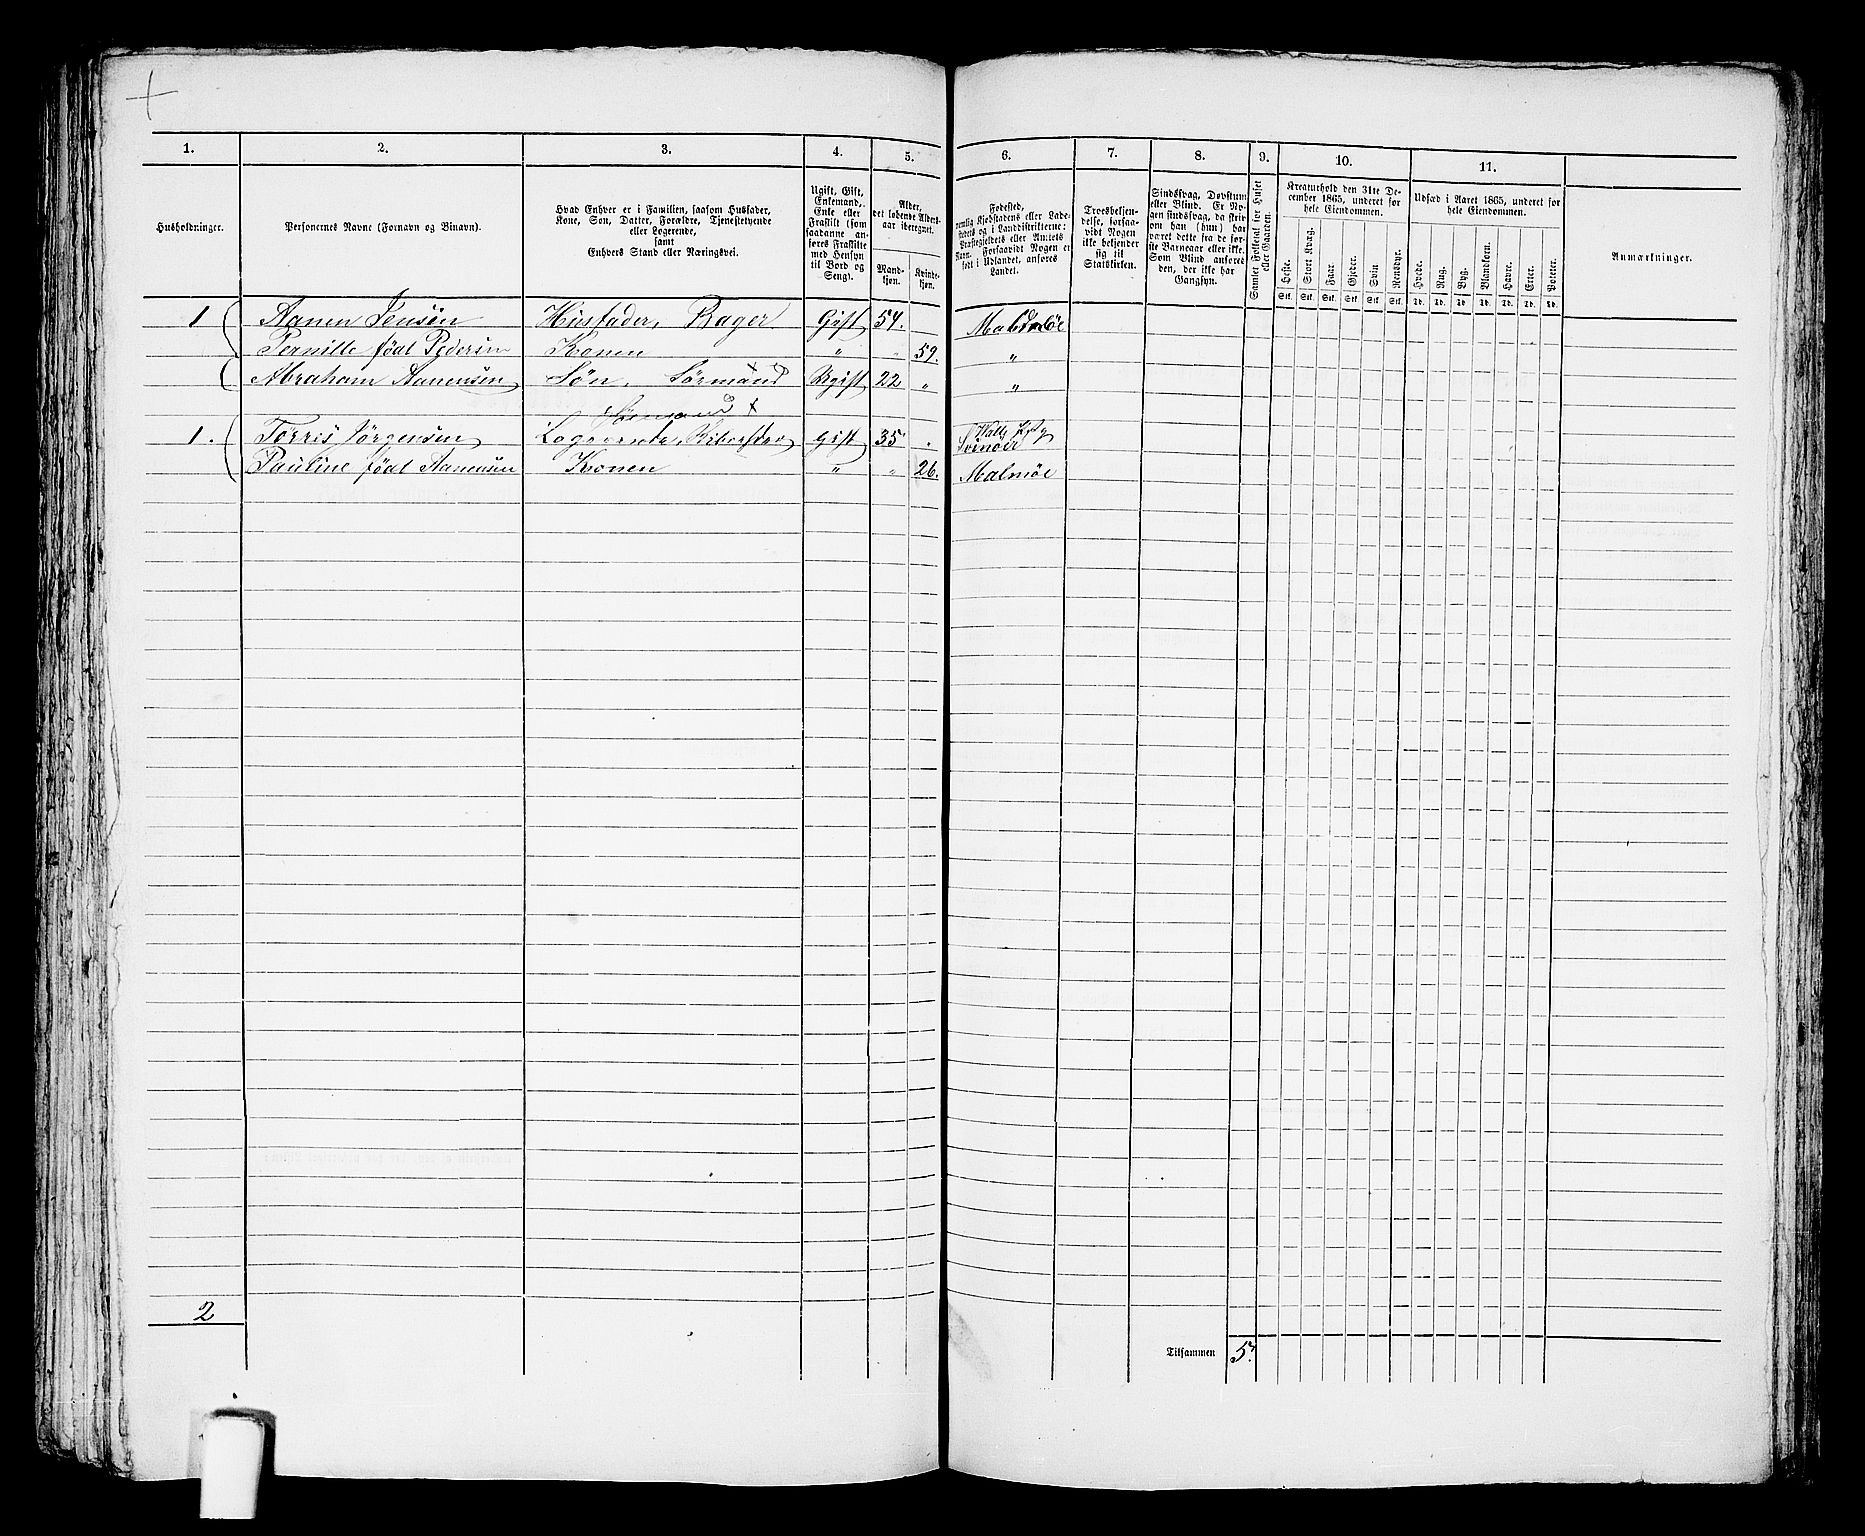 1. 2. 3. 4. 5. 6. 7. 8. 9. 10. 11.
Husholdninger.
Personernes Navne (Fornavn og Binavn).
Hvad Enhver er i Familien, saasom Husfader,
Kone, Søn, Datter, Forældre, Tjenestetyende
eller Logerende,
samt
Enhvers Stand eller Næringsvei.
Ugift, Gift,
Enkemand,
Enke eller
Fraskilt (som
saadanne an-
føres Fraskilte
med Hensyn
til Bord og
Seng).
Alder,
det løbende Alders-
aar iberegnet.
Mand-
kjøn.
Kvinde-
kjøn.
Fødested,
nemlig Kjøbstadens eller Lade-
stedets og i Landdistrikterne:
Præstegjeldets eller Amtets
Navn. Forsaavidt Nogen er
født i Udlandet, anføres
Landet.
Troesbekjen-
delse, forsaa-
vidt Nogen
ikke bekjender
sig til
Statskirken.
Sindssvag, Døvstum
eller Blind. Er No-
gen sindssvag, da skri-
ves om han (hun) har
været dette fra de før-
ste Barneaar eller ikke.
Som Blind anføres
den, der ikke har
Gangsyn.
Samlet Folketal for Huset
eller Gaarden.
Kreaturhold den 31te De-
cember 1865, underet for
hele Eiendommen.
Heste. Stort Kvæg. Faar. Gjeder. Svin. Rensdyr.
Stk. Stk. Stk. Stk. Stk. Stk.
Udsæd i Aaret 1865, underet for
hele Eiendommen.
Hvede. Rug. Byg. Blandkorn. Havre. Erter. Poteter.
Td. Td. Td. Td. Td. Td. Td.
Anmærkninger.
1 Aanen Jensen Husfader, Gift 54.
Pernille født Pedersen Konen " " 59. "
Abraham Aanensen Søn, Sørmand Ugift 22 " "
Sømand
1. Tørris Jørgensen Logerende, Gift 35 " Svinøer
Pauline født Aanensen Konen " " 26. Malmöe
2
Tilsammen 5.